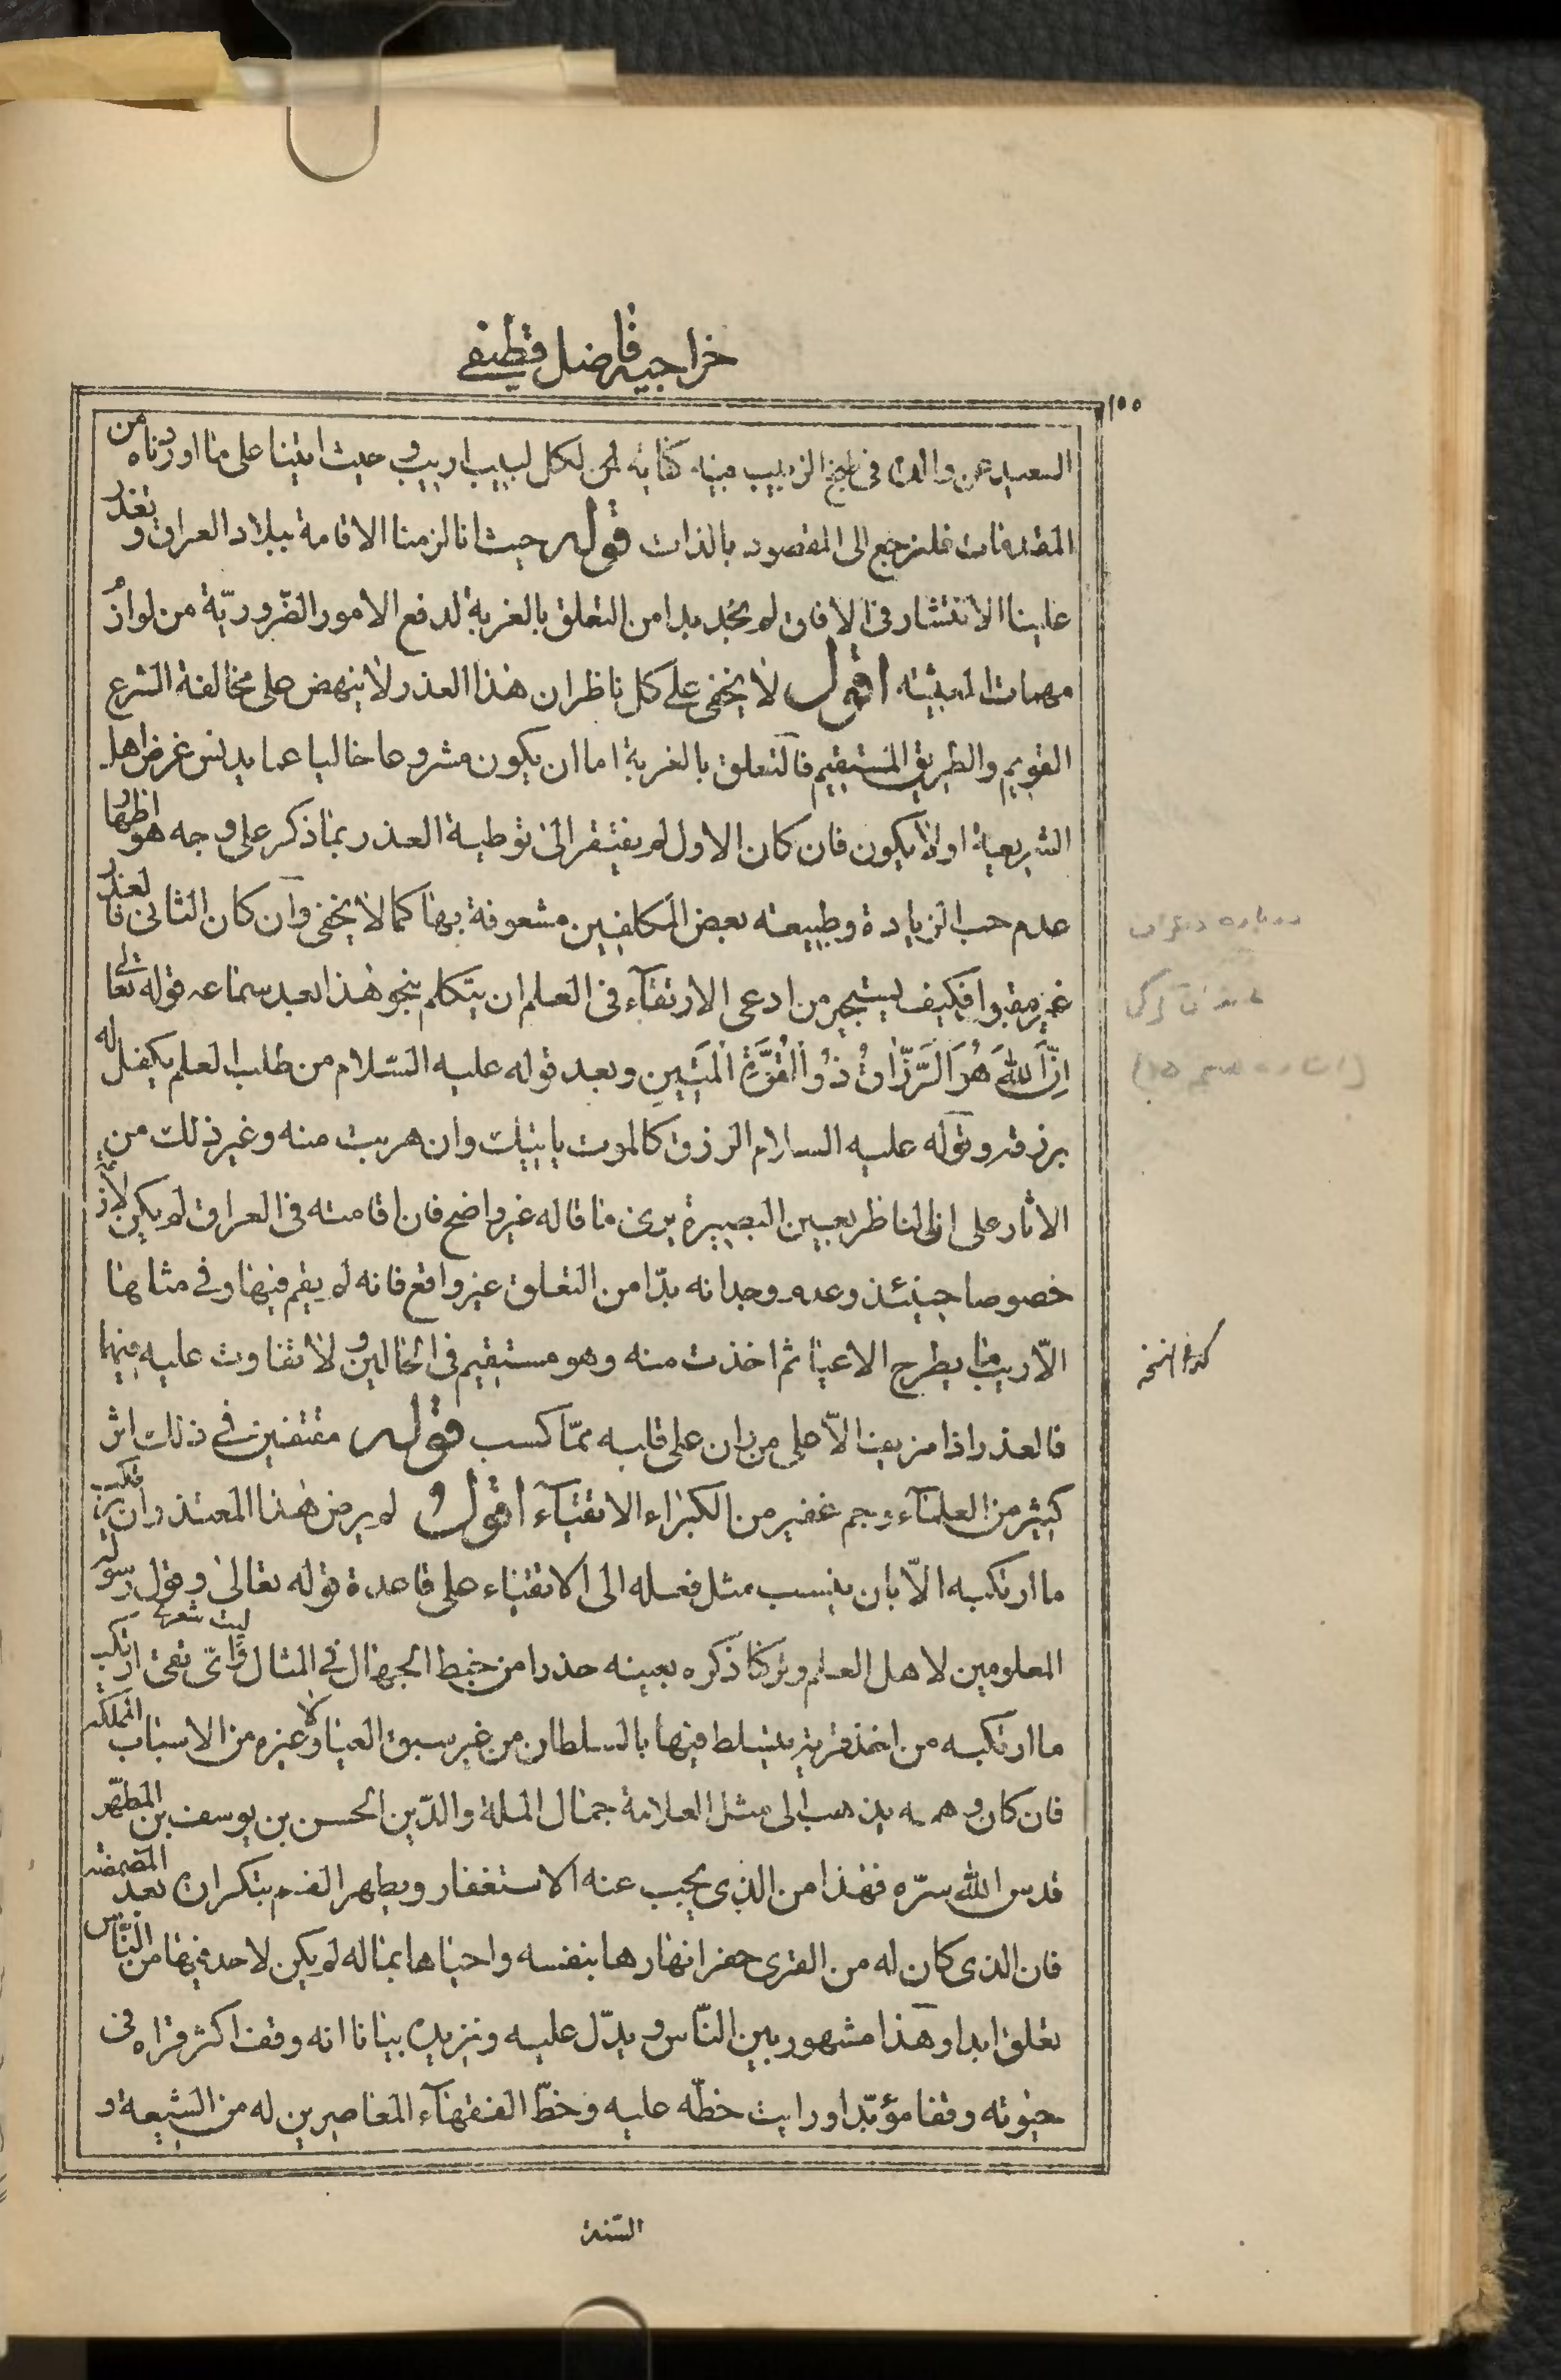 خراجيه فاضل قطيفى
١٥٥
السعيد عن والده فى بيع الزبيب فيه كفاية لمن لكل لبيب اريب وحيث اتينا على ما اوردناه من
المقدمات فلنرجع الى المقصود بالذات قوله حيث انا لزمنا الاقامة ببلاد العراق وتعذر
علينا الانتشار فى الافاق لم نجد بدا من التعلق بالغربة لدفع الامور الضّروريّة من لوازم
مهمات المعيشة اقول لا يخفى على كل ناظر ان هذا العذر لا ينهض على مخالفة الشرع
القويم والطريق المستقيم فالتعلق بالغربة اما ان يكون مشروعا خاليا عما يدنس غرض اهل
الشريعة او لا يكون فان كان الاول لم يفتقر الى توطية العذر بما ذكر على وجه هو اظهار
عدم حب الزيادة وطبيعته بعض المكلفين مشعوفة بها كما لا يخفى وان كان الثانى فالعذر
غير مقبول فكيف يستجير من ادعى الارتقاء فى العلم ان يتكلم بنحو هذا بعد سماعه قوله تعالى
اِنَّ اللهَ هُوَ الرَّزّاقُ ذُو الْقُوَّةِ الْمَتينِ وبعد قوله عليه السّلام من طلب العلم يكفل له
برزقه وقوله عليه السلام الرزق كالموت ياتيك وان هربت منه وغير ذلك من
الاثار على ان الناظر بعين البصيرة يرى ما قاله غير واضح فان اقامته فى العراق لم يكن لازما
خصوصا حينئذ وعدم وجدانه بدّا من التعلق غير واقع فانه لم يقم فيها وفى مثالها
الّا ريب ما يطرح الاعيا ثم اخذت منه وهو مستقيم فى الحالين ولا تفاوت عليه فيهما
كذا فى النسخه
فالعذر اذا مزيف الّا على من ران على قلبه ممّا كسب قوله مقتفين فى ذلك اثر
كثير من العلماء وجم غفير من الكبراء الاتقياء اقول لم يرض هذا المعتذر ان يرتكب
ما ارتكبه الّا بان ينسب مثل فعله الى الاتقياء على قاعدة قوله تعالى وقول رسوله
المعلومين لاهل العلم وتركنا ذكره بعينه حذرا من خبط الجهال فى المثال وليت شعرى اىّ تقى ارتكب
ما ارتكبه من اخذ قرية يتسلط فيها بالسلطان من غير سبق احياء ولا غيره من الاسباب المملكة
فان كان وهمه يذهب الى مثل العلامة جمال الملة والدّين الحسن بن يوسف بن المطهّر
قدس الله سرّه فهذا من الذى يجب عنه الاستغفار ويطهر الفم بتكراره بعد المضمضة
فان الذى كان له من القرى حفر انهارها بنفسه واحياها بماله لم يكن لاحد فيها من النّاس
تعلق ابدا وهذا مشهور بين النّاس ويدّل عليه ونزيده بيانا انه وقف اكثر قراه فى
حيوته وقفا مؤبّدا ورايت خطّه عليه وخطّ الفقهاء المعاصرين له من الشيعة و
السّنة